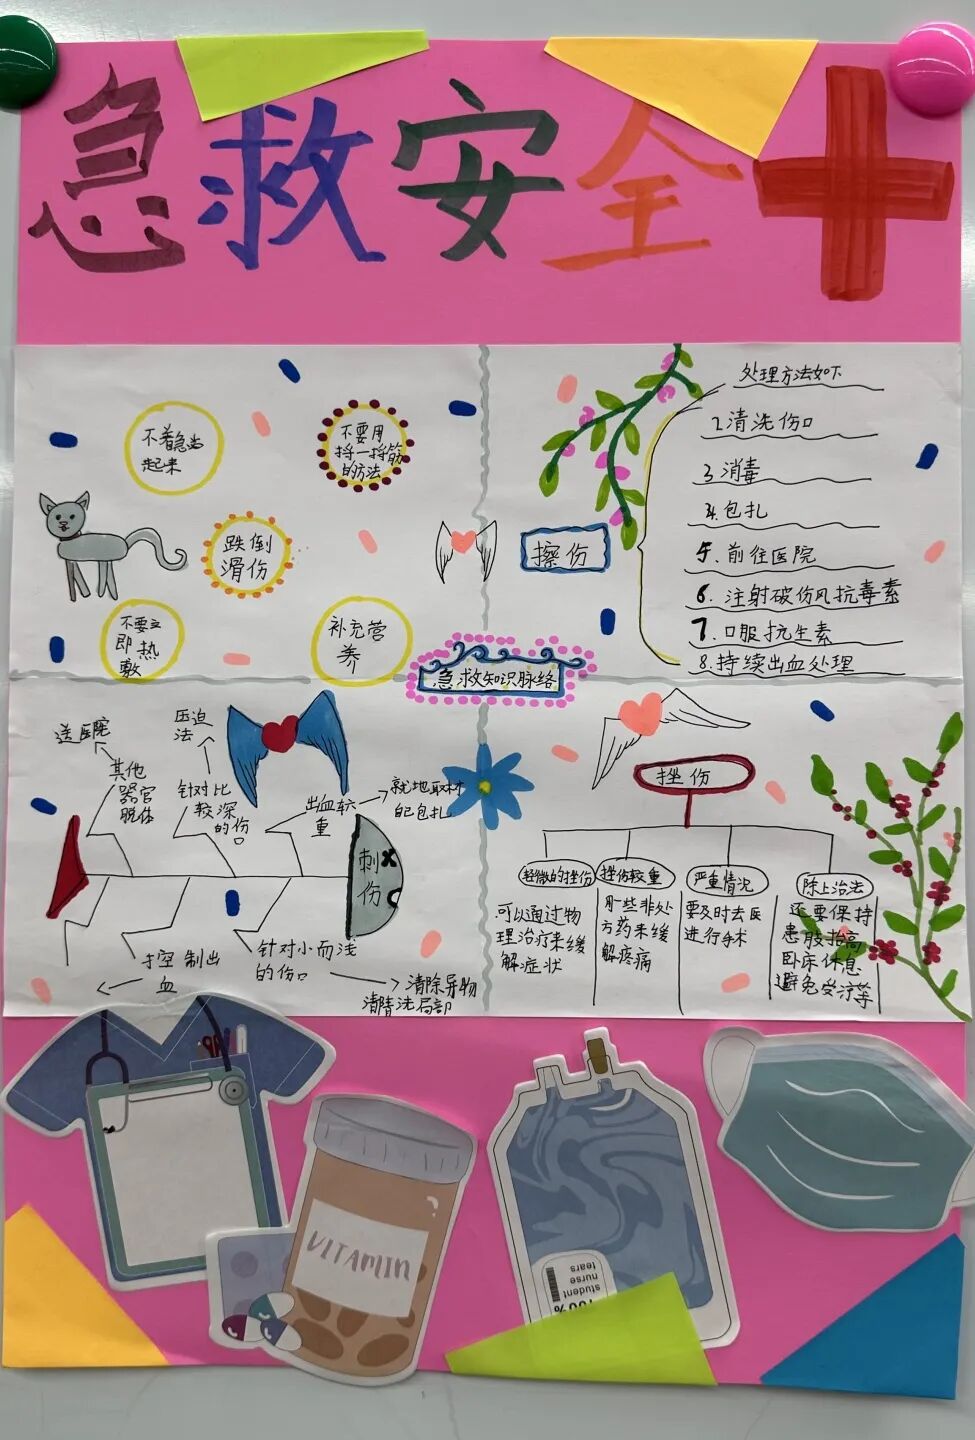 急救安全
不着急站
起来
不要用
捋一捋筋
的方法
跌倒
滑伤
不要立
即热
敷
补充营
养
处理方法如下
擦伤
2.清洗伤口
3.消毒
4.包扎
5.前往医院
6.注射破伤风抗毒素
7.口服抗生素
8.持续出血处理
急救知识脉络
送医院
其他
器官
脱体
压迫
法
针对比
较深
的伤
口
出血较
重
就地取材
包扎
刺
伤
控制出
血
针对小而浅
的伤口
清除异物
清洗局部
挫伤
轻微的挫伤
可以通过物
理治疗来缓
解症状
挫伤较重
用一些非处
方药来缓
解疼痛
严重情况
要及时去医
进行手术
除上治法
还要保持
患肢抬高
卧床休息
避免受凉等
VITAMIN
student
nurse
tears